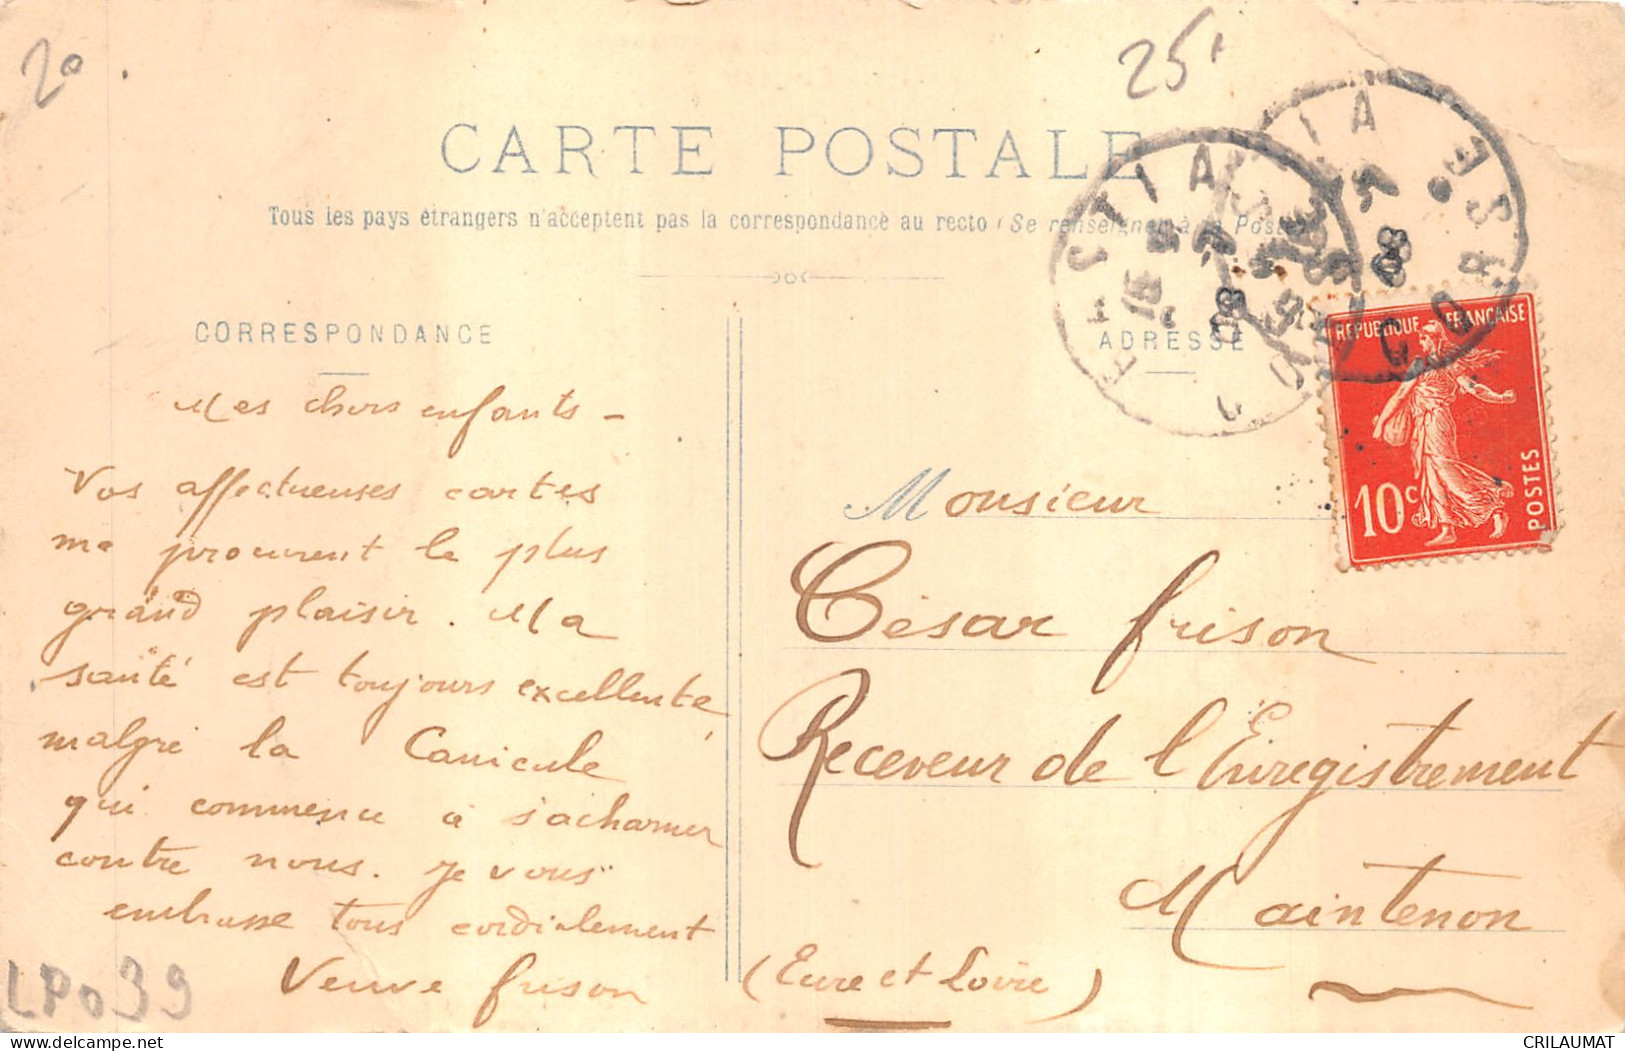 20
25
CARTE POSTALE
Tous les pays étrangers n'acceptent pas la correspondance au recto (Se renseigner à la Poste)
CORRESPONDANCE
ADRESSE
REPUBLIQUE FRANÇAISE
10c
POSTES
BASTIA
CORSE
08
Mes chers enfants -
Vos affectueuses cartes
me procurent le plus
grand plaisir. Ma
santé est toujours excellente,
malgré la Canicule
qui commence à s'acharner
contre nous. Je vous
embrasse tous cordialement
Veuve frison
Monsieur
César frison
Receveur de l'Enregistrement
Maintenon
(Eure et Loire)
LP039
CRILAUMAT